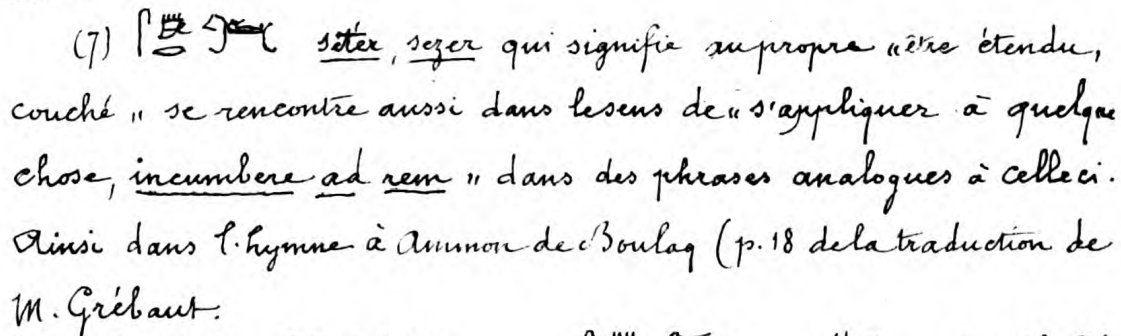 (7) séter, sezer qui signifie au propre "être étendu,
couché" se rencontre aussi dans le sens de "s'appliquer à quelque
chose, incumbere ad rem" dans des phrases analogues à celle ci.
Ainsi dans l'hymne à Ammon de Boulaq (p. 18 de la traduction de
M. Grébaut.